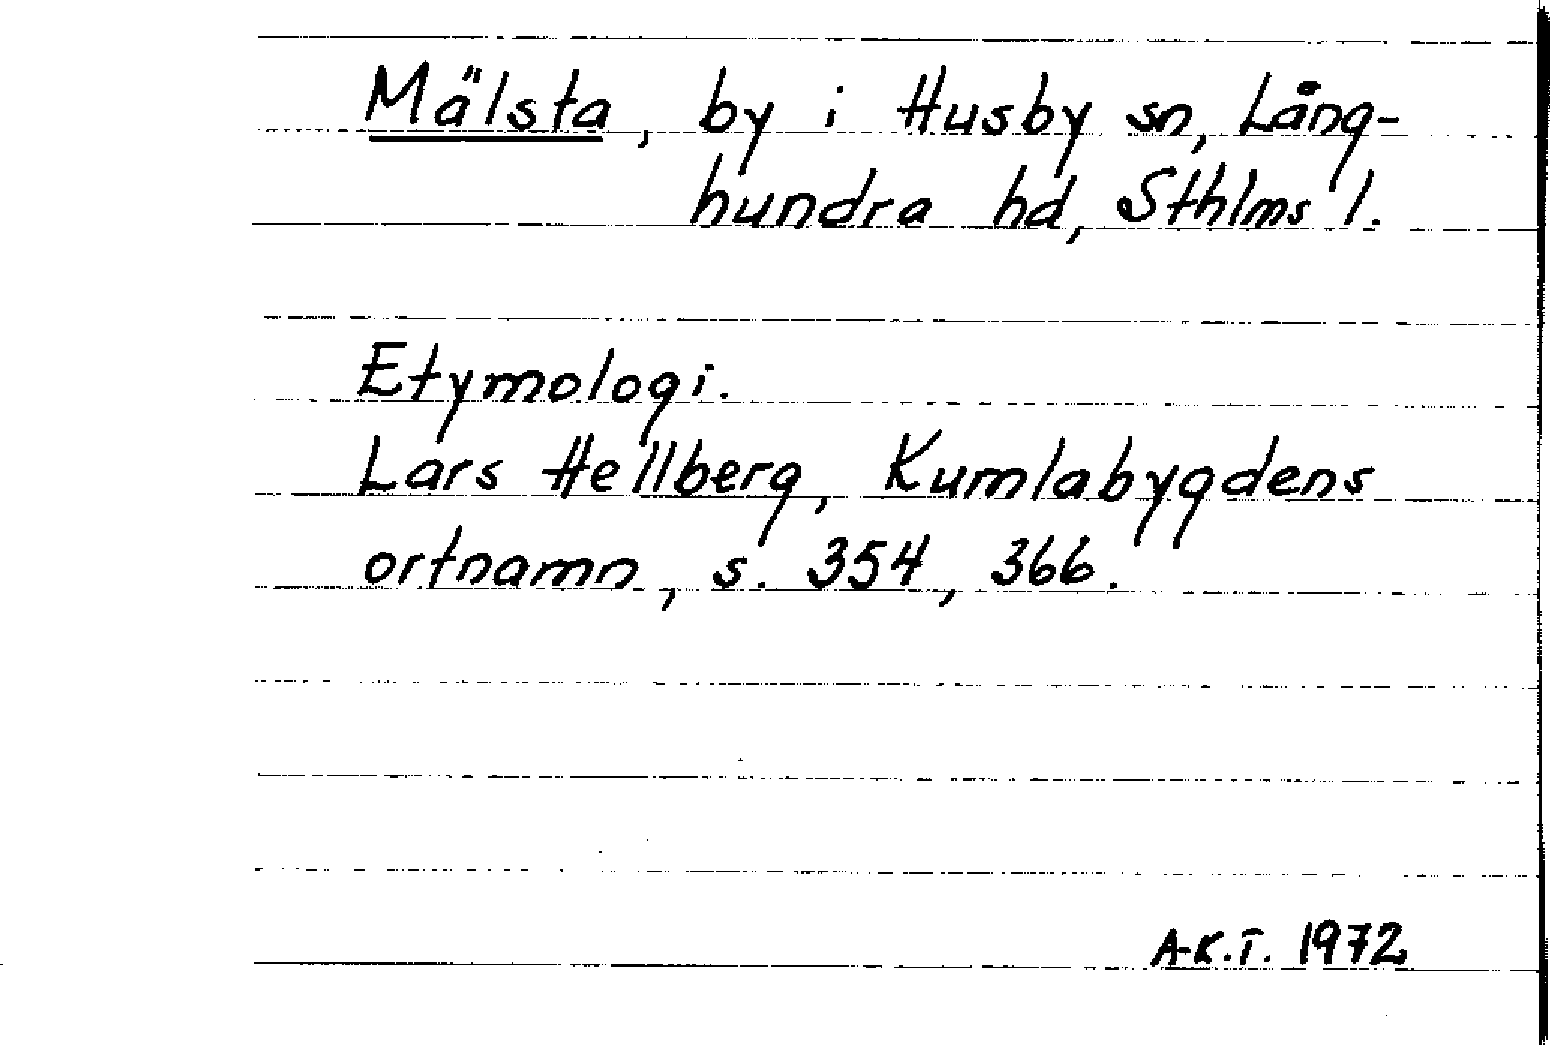 Mälsta, by i Husby sn, Lång-
hundra hd, Sthlms l.
Etymologi.
Lars Hellberg, Kumlabygdens
ortnamn, s. 354, 366.
A-K.T. 1972